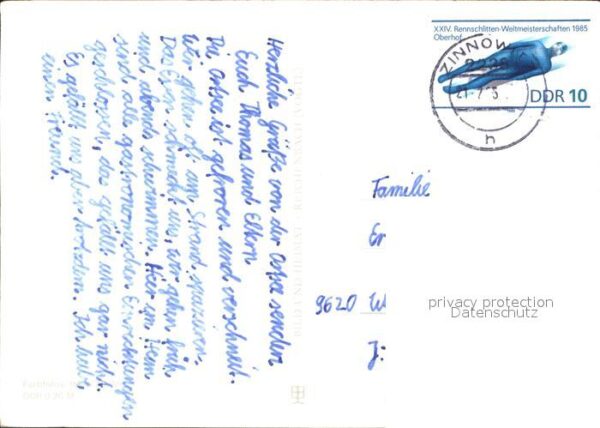 Herzliche Grüße von der Ostsee senden
Euch Thomas und Eltern
Die Ostsee ist gefroren und verschneit.
Wir gehen oft am Strand spazieren.
Das Essen schmeckt uns, wir gehen früh
und abends schwimmen. Hier im Heim
sind alle gastronomischen Einrichtungen
geschlossen, das gefällt uns gar nicht.
Es gefällt uns aber trotzdem. Ich habe
einen Freund.
XXIV. Rennschlitten-Weltmeisterschaften 1985
Oberhof
DDR 10
ZINNOW
h
Familie
Er
9620 We
privacy protection
Datenschutz
BILD UND HEIMAT REICHENBACH